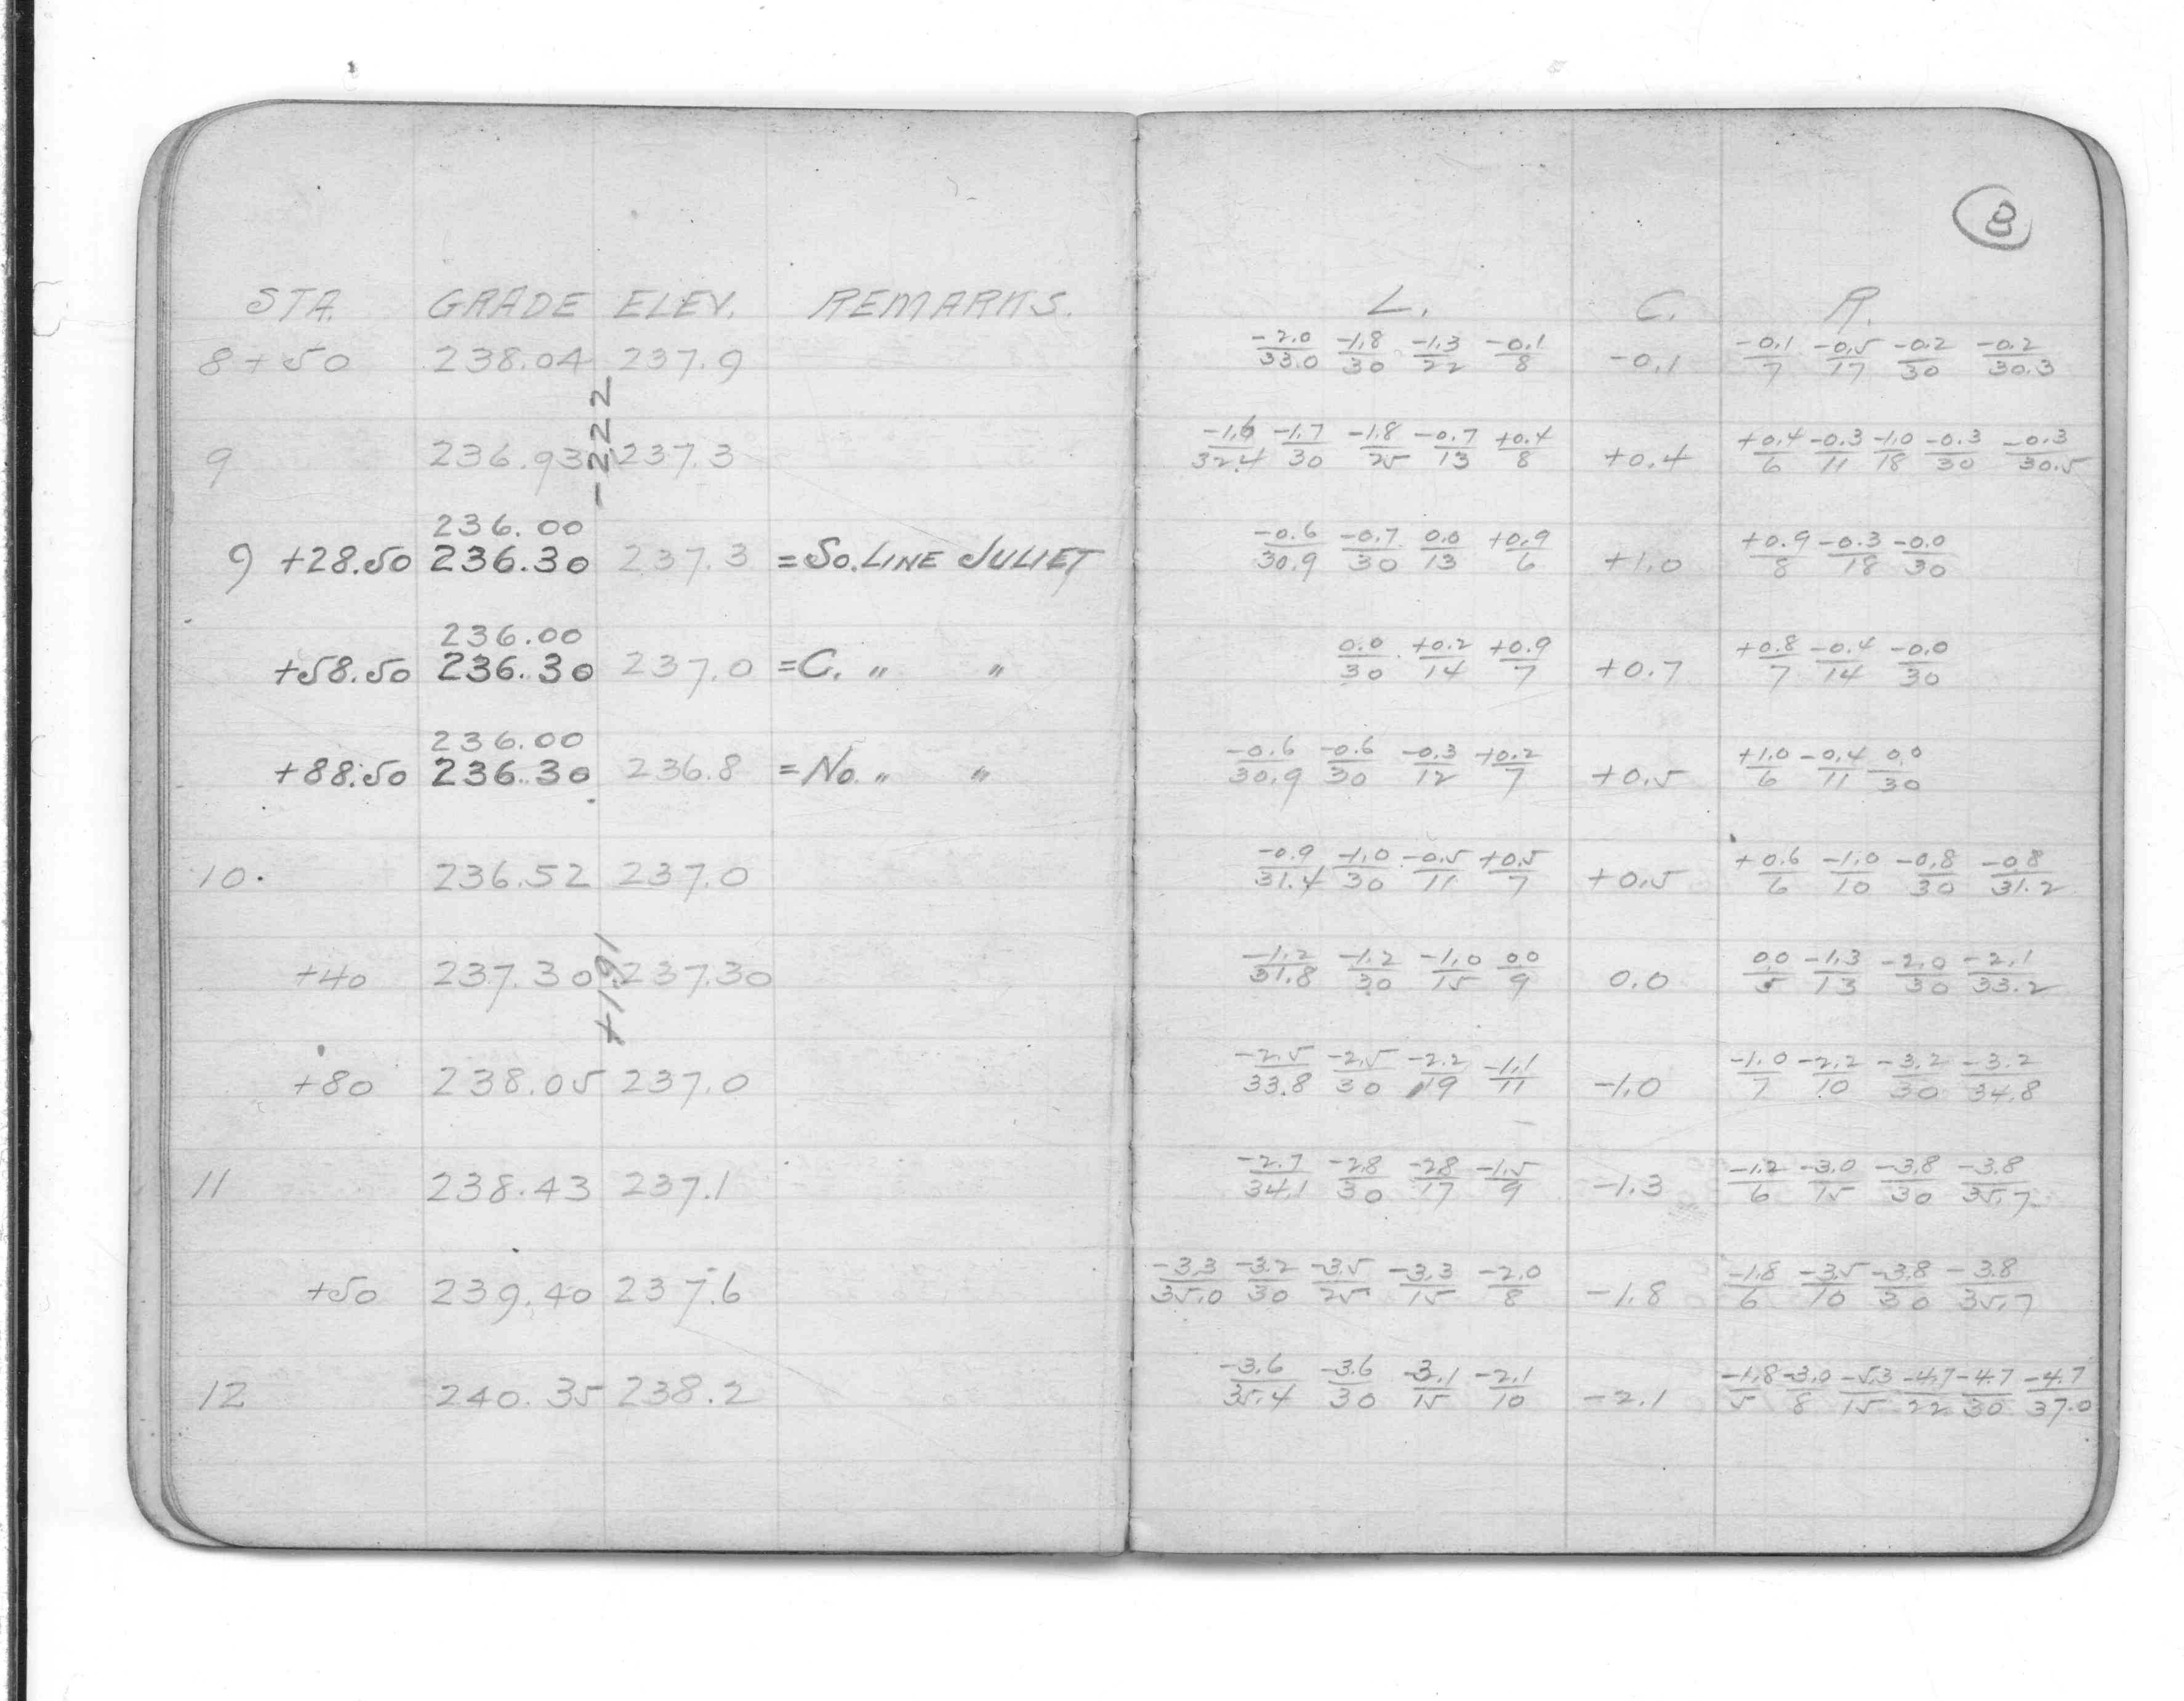 8
STA. GRADE ELEV. REMARKS. L. C. R.
8+50 238.04 237.9 -2.0/33.0 -1.8/30 -1.3/22 -0.1/8 -0.1 -0.1/7 -0.5/17 -0.2/30 -0.2/30.3
-2.22
9 236.93 237.3 -1.6/32.4 -1.7/30 -1.8/25 -0.7/13 +0.4/8 +0.4 +0.4/6 -0.3/11 -1.0/18 -0.3/30 -0.3/30.5
236.00
9 +28.50 236.30 237.3 =So. LINE JULIET -0.6/30.9 -0.7/30 0.0/13 +0.9/6 +1.0 +0.9/8 -0.3/18 -0.0/30
236.00
+58.50 236.30 237.0 =C. " " 0.0/30 +0.2/14 +0.9/7 +0.7 +0.8/7 -0.4/14 -0.0/30
236.00
+88.50 236.30 236.8 =No. " " -0.6/30.9 -0.6/30 -0.3/12 +0.2/7 +0.5 +1.0/6 -0.4/11 0.0/30
10. 236.52 237.0 -0.9/31.4 -1.0/30 -0.5/11 +0.5/7 +0.5 +0.6/6 -1.0/10 -0.8/30 -0.8/31.2
+1.91
+40 237.30 237.30 -1.2/31.8 -1.2/30 -1.0/15 0.0/9 0.0 0.0/5 -1.3/13 -2.0/30 -2.1/33.2
+80 238.05 237.0 -2.5/33.8 -2.5/30 -2.2/19 -1.1/11 -1.0 -1.0/7 -2.2/10 -3.2/30 -3.2/34.8
11 238.43 237.1 -2.7/34.1 -2.8/30 -2.8/17 -1.5/9 -1.3 -1.2/6 -3.0/15 -3.8/30 -3.8/35.7
+50 239.40 237.6 -3.3/35.0 -3.2/30 -3.5/25 -3.3/15 -2.0/8 -1.8 -1.8/6 -3.5/10 -3.8/30 -3.8/35.7
12 240.35 238.2 -3.6/35.4 -3.6/30 -3.1/15 -2.1/10 -2.1 -1.8/5 -3.0/8 -5.3/15 -4.7/22 -4.7/30 -4.7/37.0